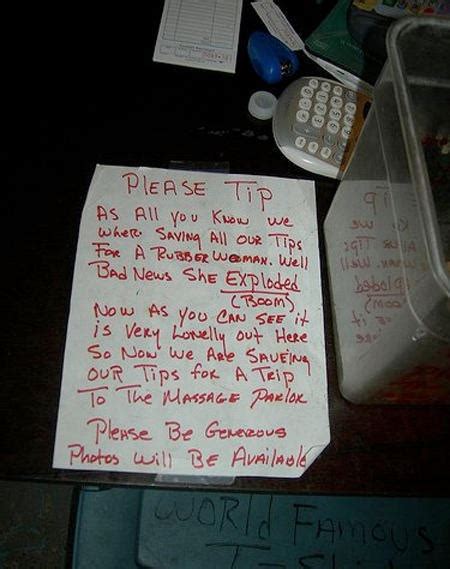 PLEASE TIP
As All you Know we
wher Saving All our Tips
For A Rubber Woman. Well
Bad News She Exploded
(Boom)
Now As you Can See it
is Very Lonelly out Here
So Now we Are Saveing
our Tips for A Trip
To The Massage Parlor
Please Be Generous
Photos will Be Available
WORld Famous
T-Shirt